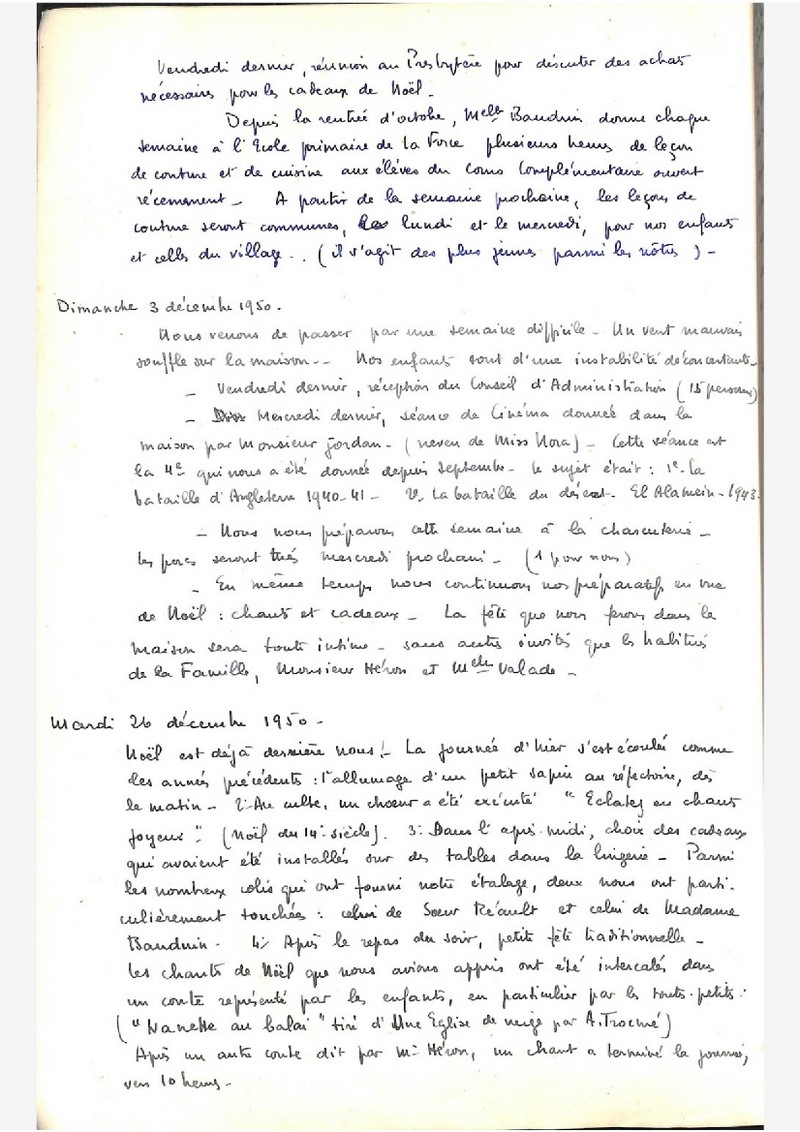 Vendredi dernier, réunion au Presbytère pour discuter des achats
nécessaires pour les cadeaux de Noël.
Depuis la rentrée d'octobre, Melle Bauduin donne chaque
semaine à l'Ecole primaire de La Force plusieurs heures de leçon
de couture et de cuisine aux élèves du Cours Complémentaire ouvert
récemment - A partir de la semaine prochaine, les leçons de
couture seront communes, les lundi et le mercredi, pour nos enfants
et celles du village.. (il s'agit des plus jeunes parmi les nôtres) -
Dimanche 3 décembre 1950.
Nous venons de passer par une semaine difficile - Un vent mauvais
souffle sur la maison -- Nos enfants sont d'une instabilité déconcertante -
- Vendredi dernier, réception du Conseil d'Administration (15 personnes)
- Mercredi dernier, séance de Cinéma donnée dans la
maison par Monsieur Jordan - (neveu de Miss Nora) - Cette séance est
la 4e qui nous a été donnée depuis septembre - le sujet était : 1e la
bataille d'Angleterre 1940-41 - 2e La bataille du désert. El Alamein - 1943.
- Nous nous préparons cette semaine à la charcuterie -
les porcs seront tués mercredi prochain - (1 pour nous)
- En même temps nous continuons nos préparatifs en vue
de Noël : chants et cadeaux - La fête que nous ferons dans la
maison sera toute intime - sans autres invités que les habitués
de la Famille, Monsieur Héron et Melle Valade -
Mardi 26 décembre 1950 -
Noël est déjà derrière nous ! - La journée d'hier s'est écoulée comme
les années précédentes : l'allumage d'un petit sapin au réfectoire, dès
le matin - 2: Au culte, un choeur a été exécuté "Eclatez en chants
joyeux" (Noël du 14e siècle). 3: Dans l'après-midi, choix des cadeaux
qui avaient été installés sur des tables dans la lingerie - Parmi
les nombreux colis qui ont fourni notre étalage, deux nous ont parti-
culièrement touchées : celui de Soeur Réault et celui de Madame
Bauduin - 4: Après le repas du soir, petite fête traditionnelle -
les chants de Noël que nous avions appris ont été intercalés dans
un conte représenté par les enfants, en particulier par les touts-petits :
("Nanette au balai" tiré d'Une Eglise de neige par A. Trocmé)
Après un autre conte dit par Mr Héron, un chant a terminé la journée,
vers 10 heures -